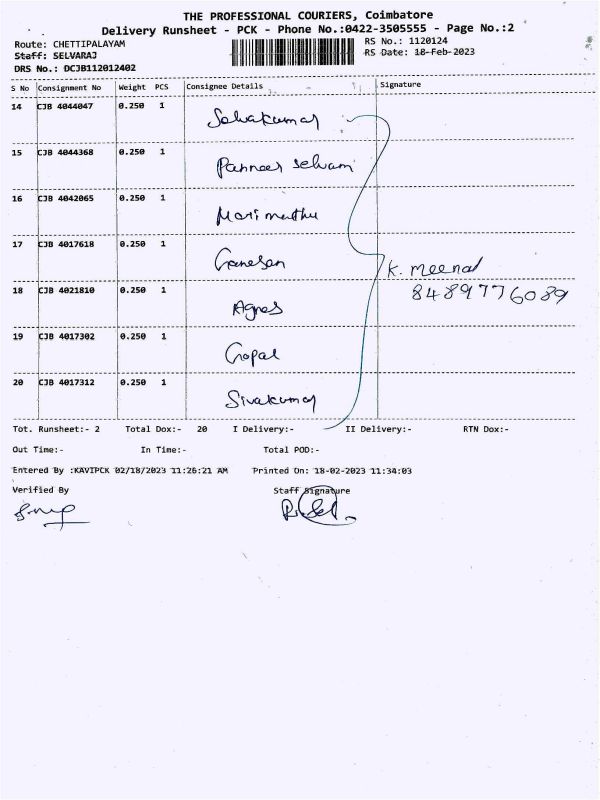 THE PROFESSIONAL COURIERS, Coimbatore
Delivery Runsheet - PCK - Phone No.:0422-3505555 - Page No.:2
Route: CHETTIPALAYAM RS No.: 1120124
Staff: SELVARAJ RS Date: 18-Feb-2023
DRS No.: DCJB112012402
S No Consignment No Weight PCS Consignee Details Signature
14 CJB 4044047 0.250 1 Selvakumar
15 CJB 4044368 0.250 1 Panneer selvam
16 CJB 4042065 0.250 1 Mari muthu
17 CJB 4017618 0.250 1 Ganesan K. meenal
18 CJB 4021810 0.250 1 Agnes 8489776089
19 CJB 4017302 0.250 1 Gopal
20 CJB 4017312 0.250 1 Sivakumar
Tot. Runsheet:- 2 Total Dox:- 20 I Delivery:- II Delivery:- RTN Dox:-
Out Time:- In Time:- Total POD:-
Entered By :KAVIPCK 02/18/2023 11:26:21 AM Printed On: 18-02-2023 11:34:03
Verified By Staff Signature